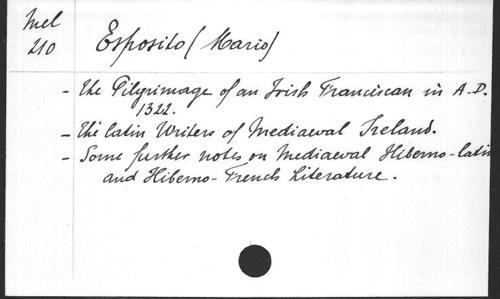 Mel
210
Esposito (Mario)
- The Pilgrimage of an Irish Franciscan in A.D.
1322.
- The Latin Writers of Mediaeval Ireland.
- Some further notes on Mediaeval Hiberno-latin
and Hiberno-French Literature.